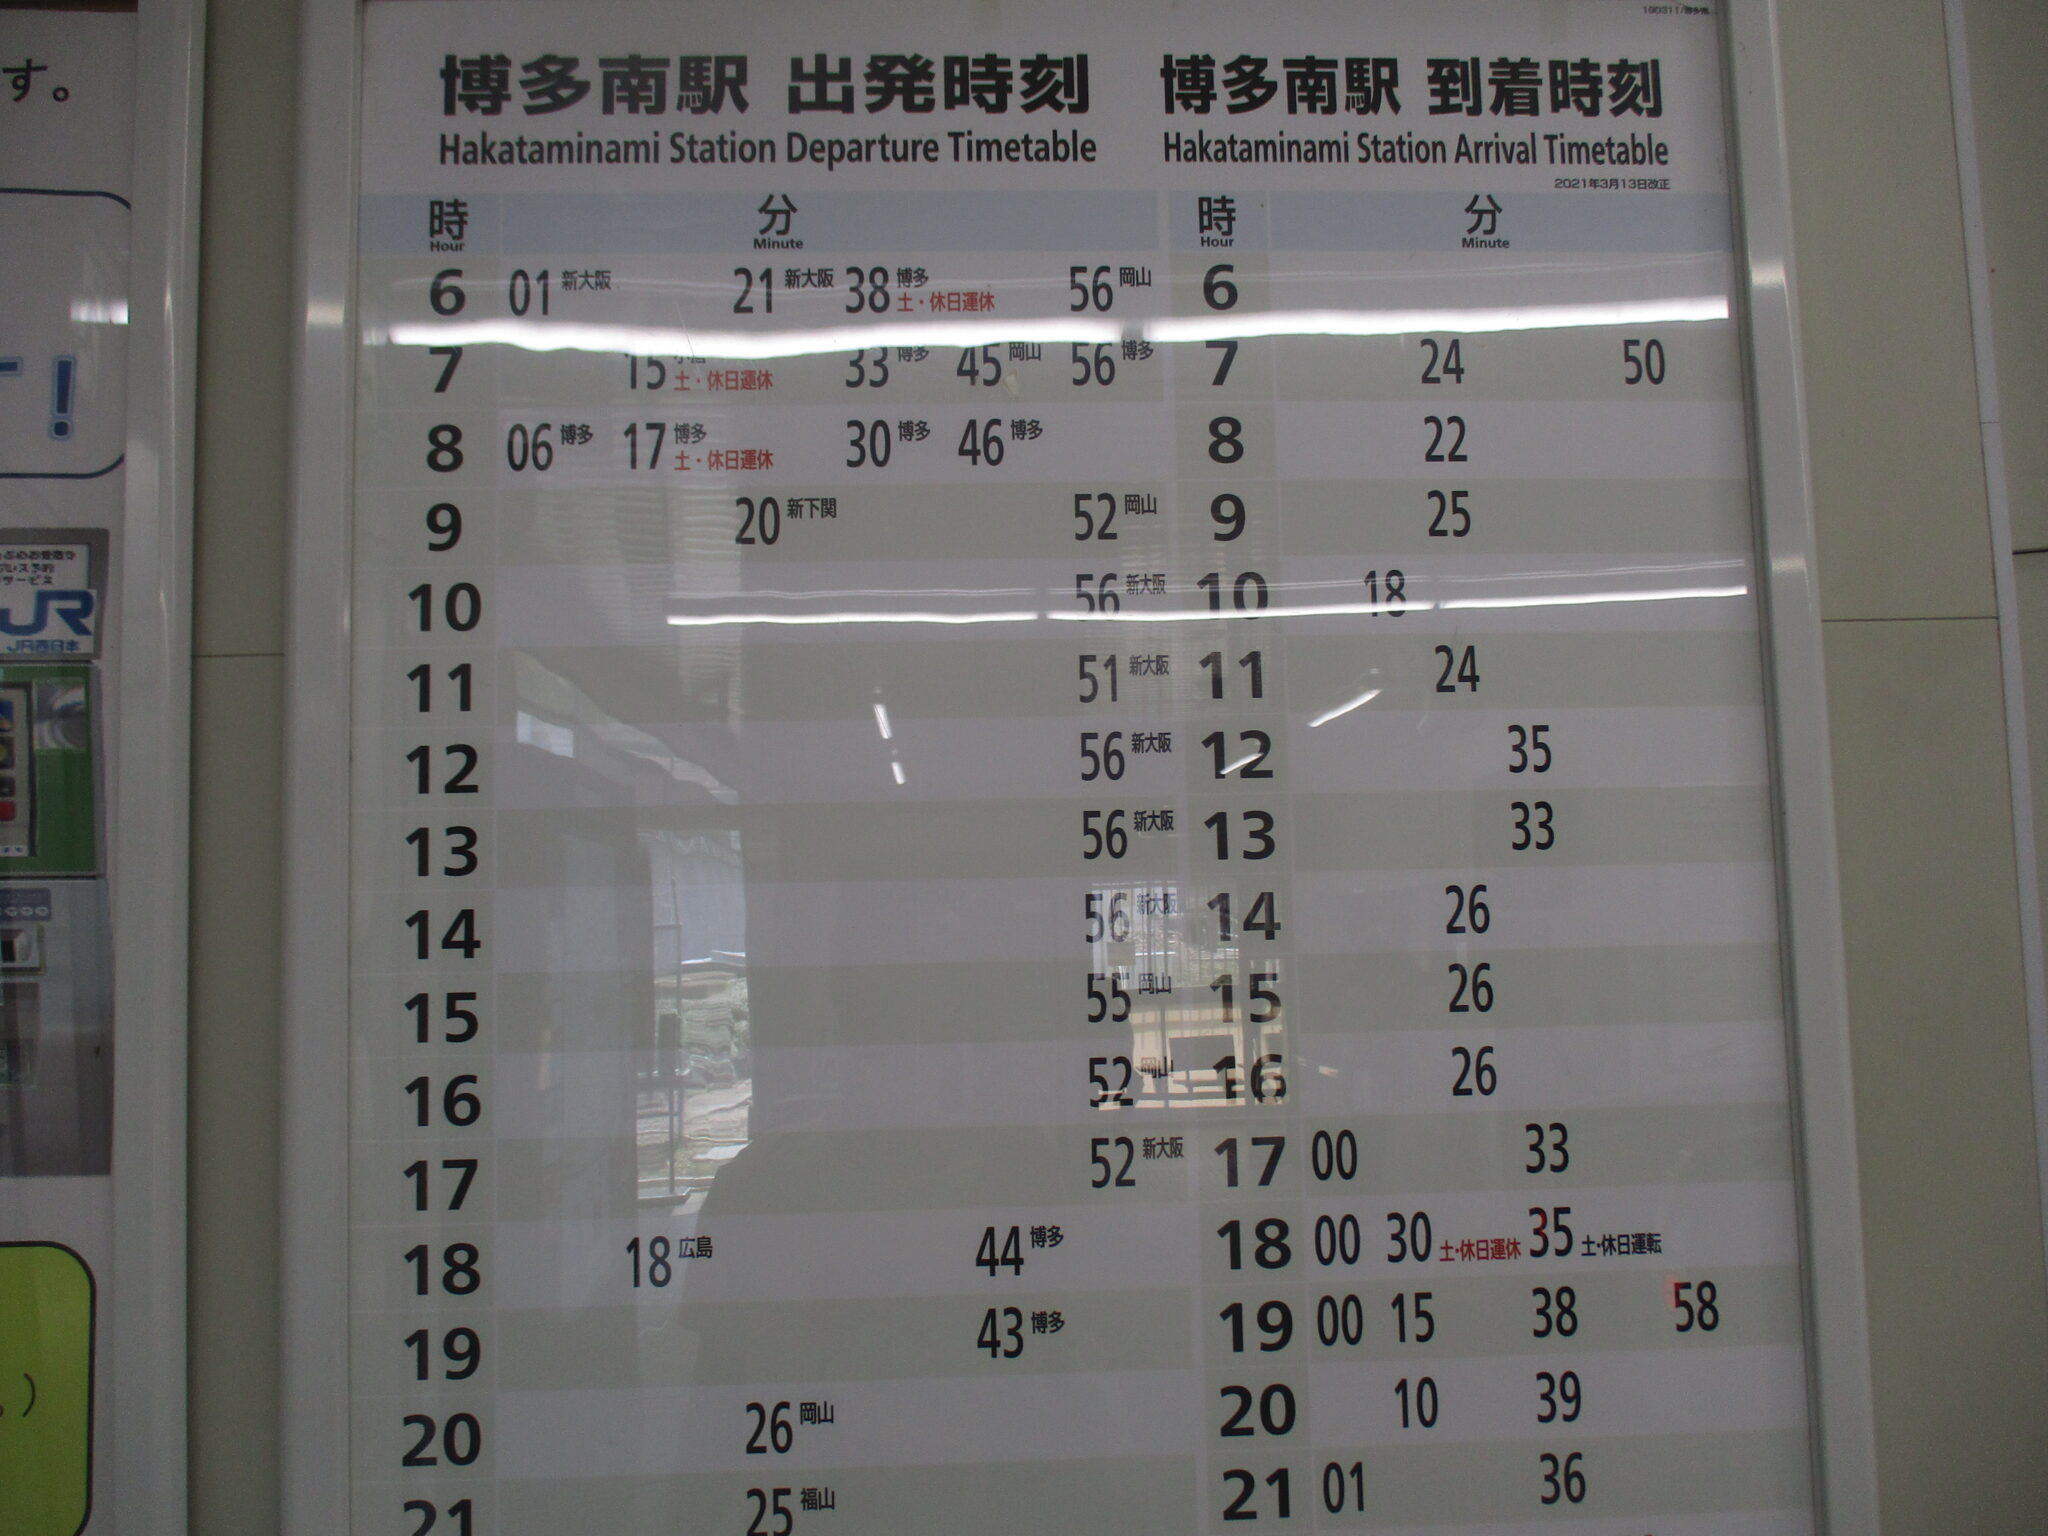 す。
!
ぶめお受取り
プレス予約
サービス
JR
JR西日本
190311/博多南
博多南駅 出発時刻
Hakataminami Station Departure Timetable
時 分
Hour Minute
6 01 新大阪 21 新大阪 38 博多 土・休日運休 56 岡山
7 15 土・休日運休 33 博多 45 岡山 56 博多
8 06 博多 17 博多 土・休日運休 30 博多 46 博多
9 20 新下関 52 岡山
10 56 新大阪
11 51 新大阪
12 56 新大阪
13 56 新大阪
14 56 新大阪
15 55 岡山
16 52 岡山
17 52 新大阪
18 18 広島 44 博多
19 43 博多
20 26 岡山
21 25 福山
博多南駅 到着時刻
Hakataminami Station Arrival Timetable
2021年3月13日改正
時 分
Hour Minute
6
7 24 50
8 22
9 25
10 18
11 24
12 35
13 33
14 26
15 26
16 26
17 00 33
18 00 30 土・休日運休 35 土・休日運転
19 00 15 38 58
20 10 39
21 01 36